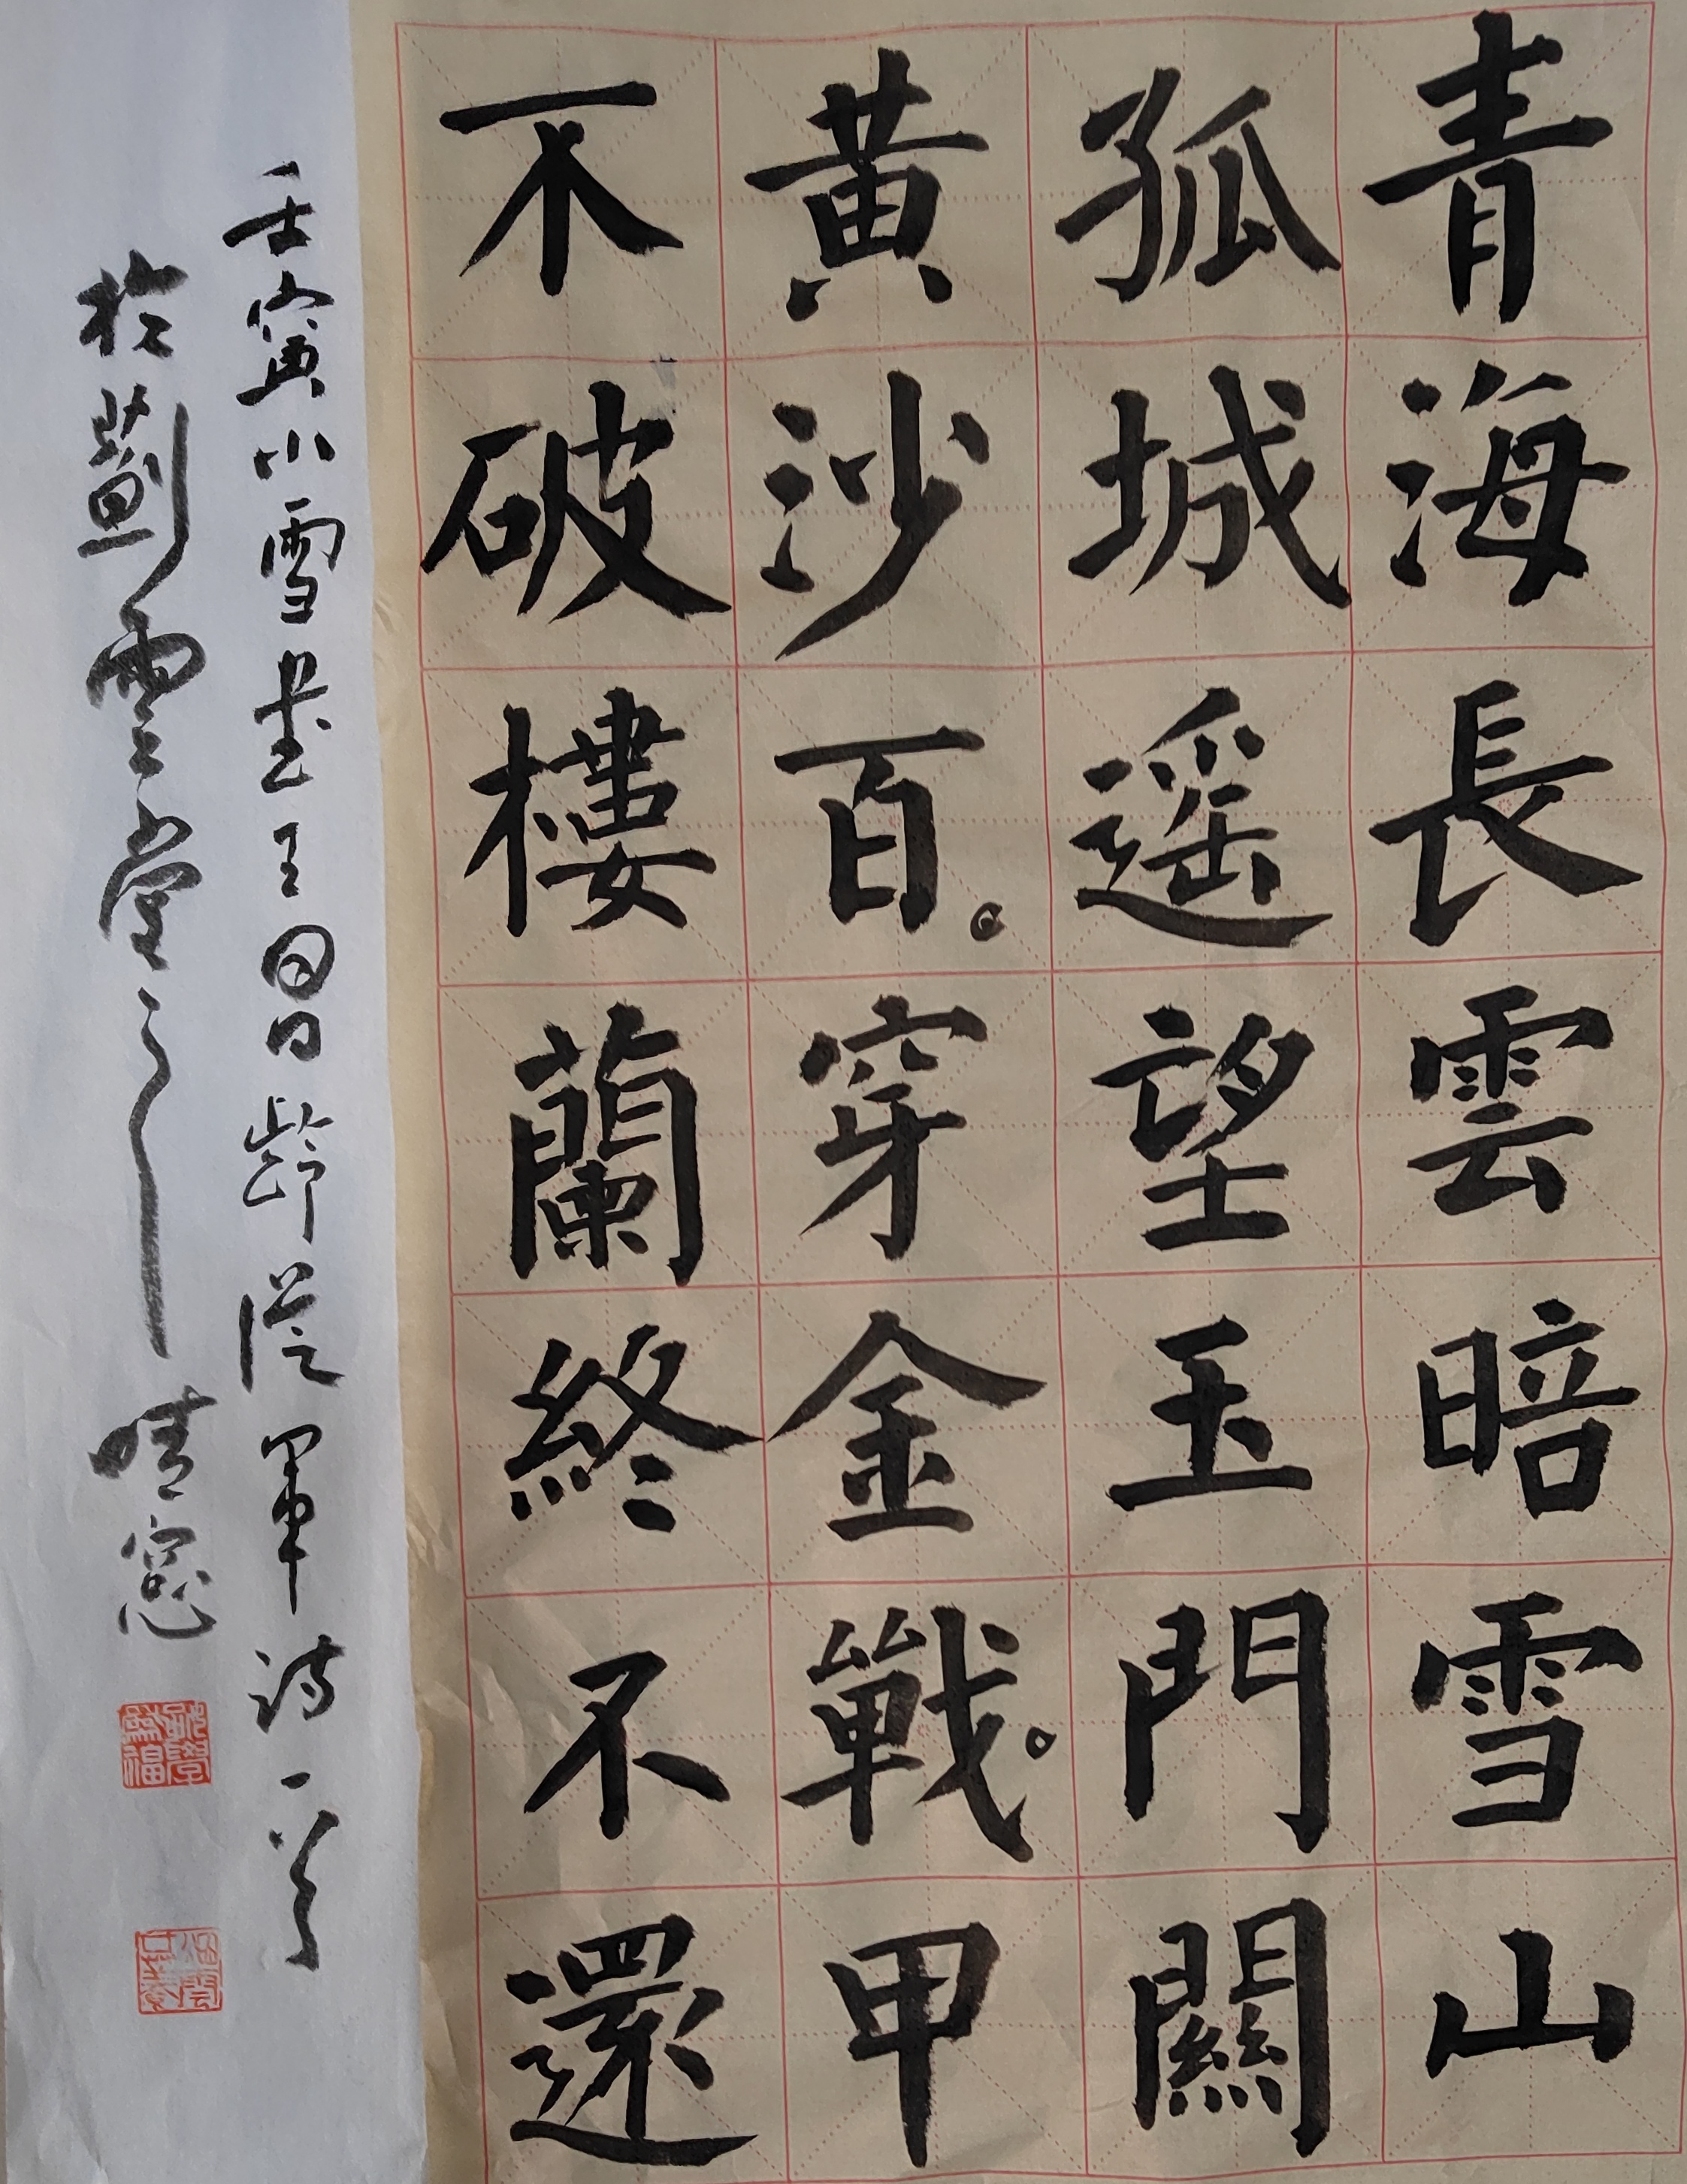 青海長雲暗雪山
孤城遥望玉門關
黄沙百。穿金戰。甲
不破樓蘭終不還
壬寅小雪書王昌齡從軍詩一首
於薊雲堂之晴窓